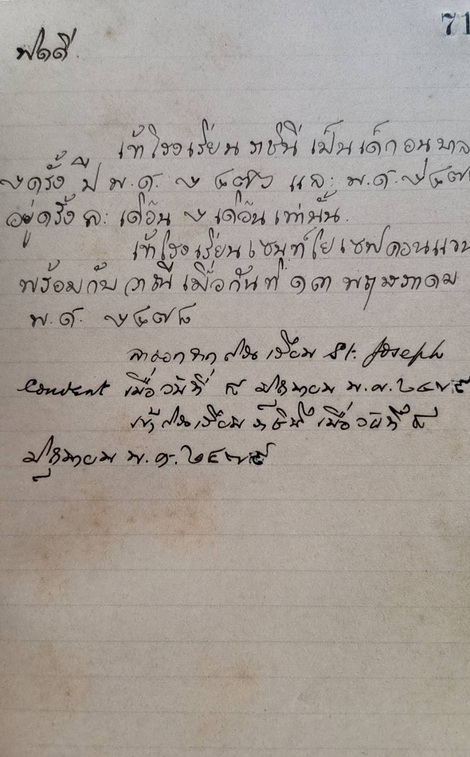 71
เข้าโรงเรียนราชินี เป็นเด็กอนุบาล
๒ ครั้ง ปี พ.ศ. ๒๔๗๖ และ พ.ศ. ๒๔๗
อยู่ครั้งละ เดือน ๒ เดือนเท่านั้น.
เข้าโรงเรียนเซนต์โยเซฟคอนแวน
พร้อมกับราณี เมื่อวันที่ ๑๓ พฤษภาคม
พ.ศ. ๒๔๗๘
ลาออกจากโรงเรียน St. Joseph
Convent เมื่อวันที่ ๕ มิถุนายน พ.ศ. ๒๔๗๙
เข้าโรงเรียนราชินี เมื่อวันที่ ๕
มิถุนายน พ.ศ. ๒๔๗๙